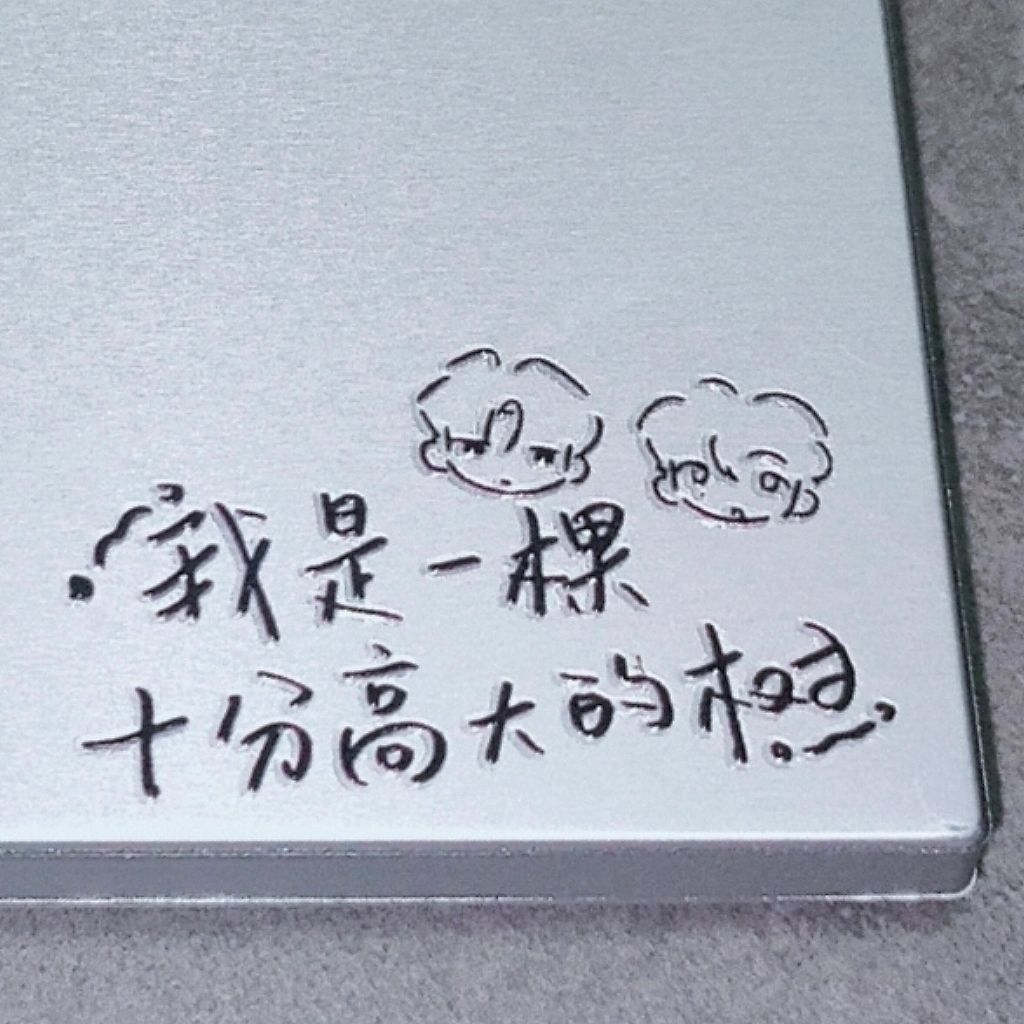 我是一棵
十分高大的树